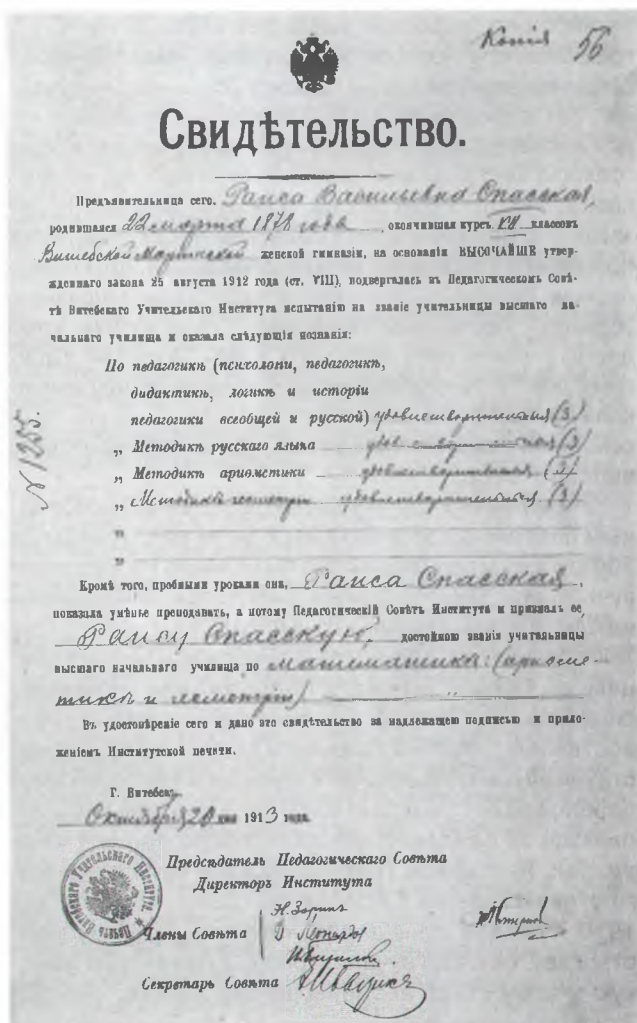 Копія 56
Свидѣтельство.
Предъявительница сего, Раиса Васильевна Спасская,
родившаяся 22 марта 1878 года, окончившая курсъ VII классовъ
Витебской Маріинской женской гимназіи, на основаніи ВЫСОЧАЙШЕ утвер-
жденнаго закона 25 августа 1912 года (ст. VIII), подвергалась въ Педагогическомъ Совѣ-
тѣ Витебскаго Учительскаго Института испытанію на званіе учительницы высшаго на-
чальнаго училища и оказала слѣдующія познанія:
По педагогикѣ (психологіи, педагогикѣ,
дидактикѣ, логикѣ и исторіи
педагогики всеобщей и русской) удовлетворительныя (3)
„ Методикѣ русскаго языка удовлетворительныя (3)
„ Методикѣ ариѳметики удовлетворительныя
„ Методикѣ геометріи удовлетворительныя (3)
„
„
N 1255.
Кромѣ того, пробными уроками она, Раиса Спасская,
показала умѣнье преподавать, а потому Педагогическій Совѣтъ Института и призналъ ее,
Раису Спасскую, достойною званія учительницы
высшаго начальнаго училища по математикѣ: (ариѳме-
тикѣ и геометріи) „
Въ удостовѣреніе сего и дано это свидѣтельство за надлежащею подписью и прило-
женіемъ Институтской печати.
Г. Витебскъ,
Октября 20 дня 1913 года.
Предсѣдатель Педагогическаго Совѣта
Директоръ Института
Члены Совѣта
Н. Зоринъ
Секретарь Совѣта
Печать Витебскаго Учительскаго Института